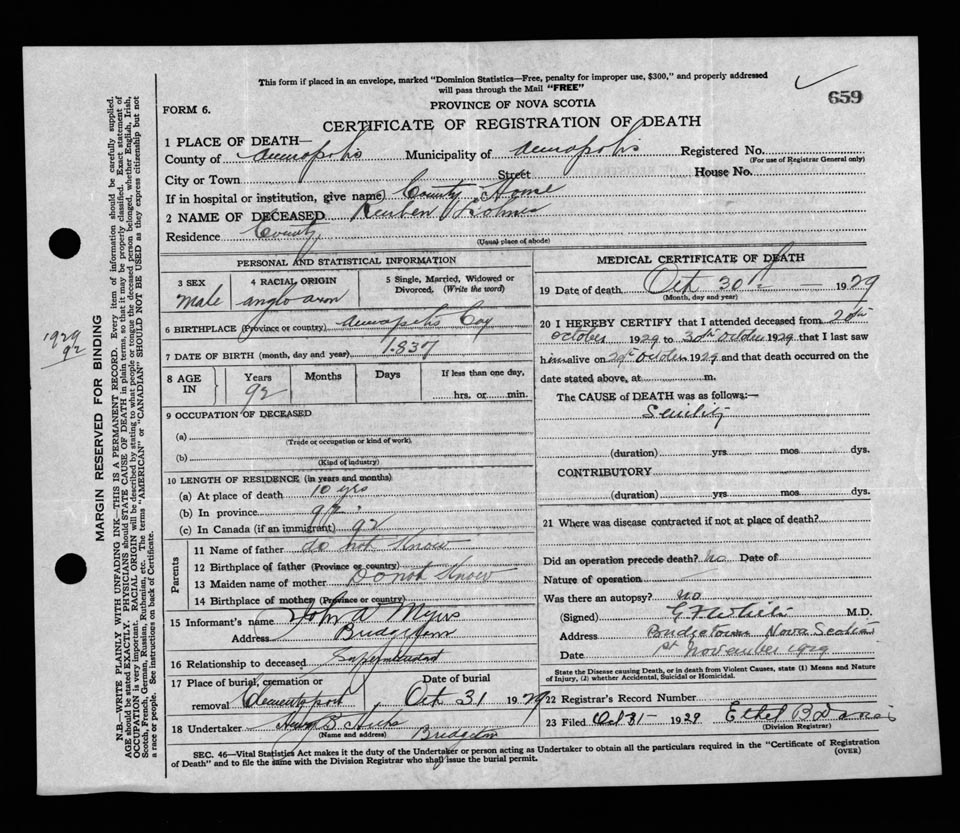 This form if placed in an envelope, marked "Dominion Statistics—Free, penalty for improper use, $300," and properly addressed
will pass through the Mail "FREE"
659
PROVINCE OF NOVA SCOTIA
FORM 6.
CERTIFICATE OF REGISTRATION OF DEATH
1 PLACE OF DEATH—
County of Annapolis Municipality of Annapolis Registered No.
(For use of Registrar General only)
City or Town Street House No.
If in hospital or institution, give name) County Home
2 NAME OF DECEASED Reuben
Residence County
(Usual place of abode)
PERSONAL AND STATISTICAL INFORMATION
3 SEX 4 RACIAL ORIGIN 5 Single, Married, Widowed or
Divorced. (Write the word)
Male anglo
6 BIRTHPLACE (Province or country) Annapolis Coy
7 DATE OF BIRTH (month, day and year) 1837
8 AGE IN Years Months Days If less than one day,
92 hrs. or min.
9 OCCUPATION OF DECEASED
(a)
(Trade or occupation or kind of work)
(b)
(Kind of industry)
10 LENGTH OF RESIDENCE (in years and months)
(a) At place of death 10 yrs
(b) In province 92
(c) In Canada (if an immigrant) 92
Parents
11 Name of father do not Know
12 Birthplace of father (Province or country)
13 Maiden name of mother Do not Know
14 Birthplace of mother (Province or country)
15 Informant's name John A Myers
Address Bridgetown
16 Relationship to deceased Superintendent
17 Place of burial, cremation or Date of burial
removal Clementsport Oct 31 1929
18 Undertaker Hicks Bridgetn
(Name and address)
MEDICAL CERTIFICATE OF DEATH
19 Date of death Oct 30 — 1929
(Month, day and year)
20 I HEREBY CERTIFY that I attended deceased from 20th
October 1929 to 30th October 1929 that I last saw
him alive on 29th October 1929 and that death occurred on the
date stated above, at m.
The CAUSE of DEATH was as follows:—
Senility
(duration) yrs mos dys.
CONTRIBUTORY
(duration) yrs mos dys.
21 Where was disease contracted if not at place of death?
Did an operation precede death? No Date of
Nature of operation
Was there an autopsy? no
(Signed) M.D.
Address Bridgetown Nova Scotia
Date 1st November 1929
State the Disease causing Death, or in death from Violent Causes, state (1) Means and Nature
of Injury, (2) whether Accidental, Suicidal or Homicidal.
22 Registrar's Record Number
23 Filed Oct 31 - 1929 Ethel B Davis
(Division Registrar)
SEC. 46—Vital Statistics Act makes it the duty of the Undertaker or person acting as Undertaker to obtain all the particulars required in the "Certificate of Registration
of Death" and to file the same with the Division Registrar who shall issue the burial permit.
(OVER)
1929
92
MARGIN RESERVED FOR BINDING
N.B.—WRITE PLAINLY WITH UNFADING INK—THIS IS A PERMANENT RECORD. Every item of information should be carefully supplied.
AGE should be stated EXACTLY. PHYSICIANS should STATE CAUSE OF DEATH in plain terms, so that it may be properly classified. Exact statement of
OCCUPATION is very important. RACIAL ORIGIN will be described by stating to what people or tongue the deceased person belonged, whether English, Irish,
Scotch, French, German, Russian, Ruthenian, etc. The terms "AMERICAN" or "CANADIAN" SHOULD NOT BE USED as they express citizenship but not
a race or people. See instructions on back of Certificate.